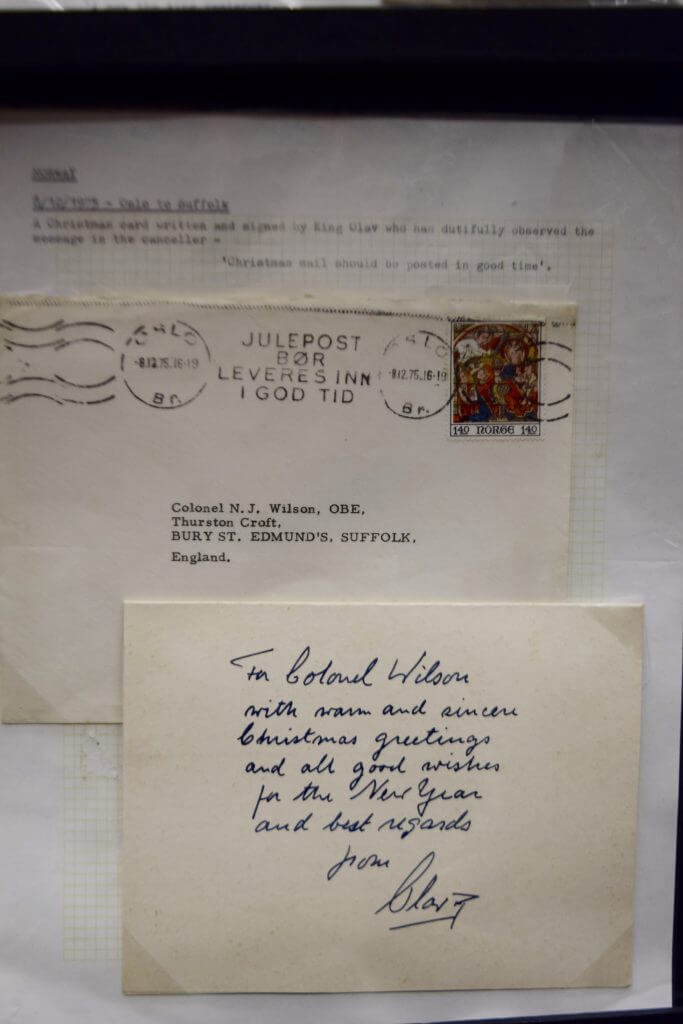 NORWAY
8/12/1975 - Oslo to Suffolk
A Christmas card written and signed by King Olav who has dutifully observed the
message in the canceller -
'Christmas mail should be posted in good time'.
OSLO
-8.12.75.16-19
Br.
JULEPOST
BØR
LEVERES INN
I GOD TID
OSLO
-8.12.75.16-19
Br.
140 NORGE 140
Colonel N.J. Wilson, OBE,
Thurston Croft,
BURY ST. EDMUND'S, SUFFOLK,
England.
For Colonel Wilson
with warm and sincere
Christmas greetings
and all good wishes
for the New Year
and best regards
from
Olav R